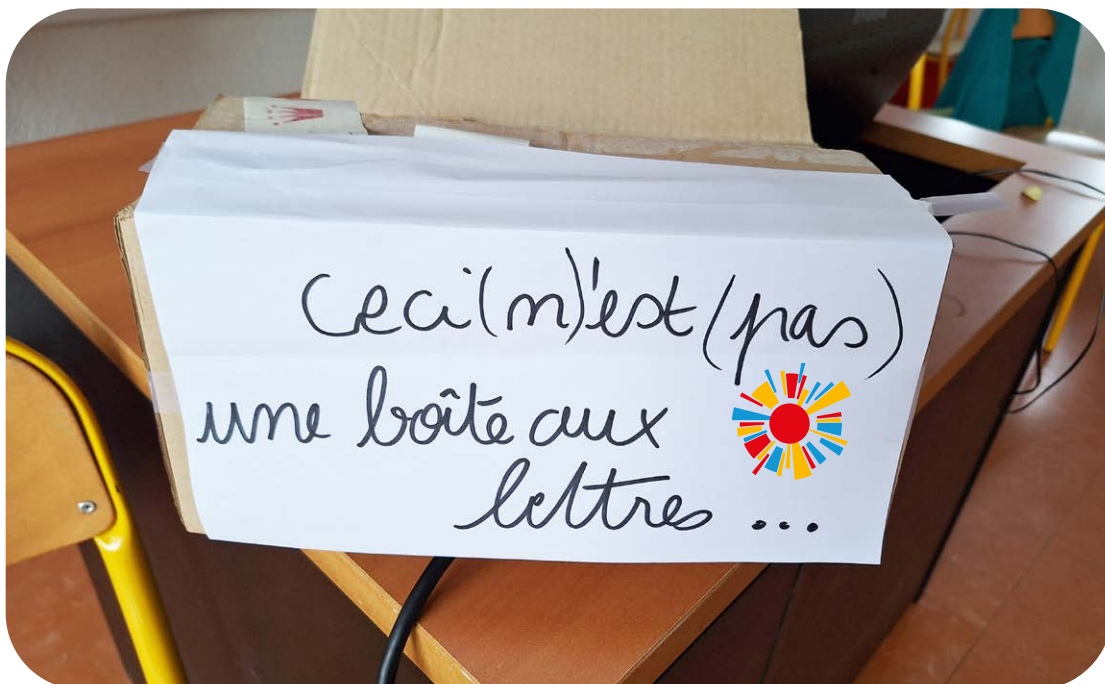 Ceci(n)'est(pas)
une boîte aux
lettres ...